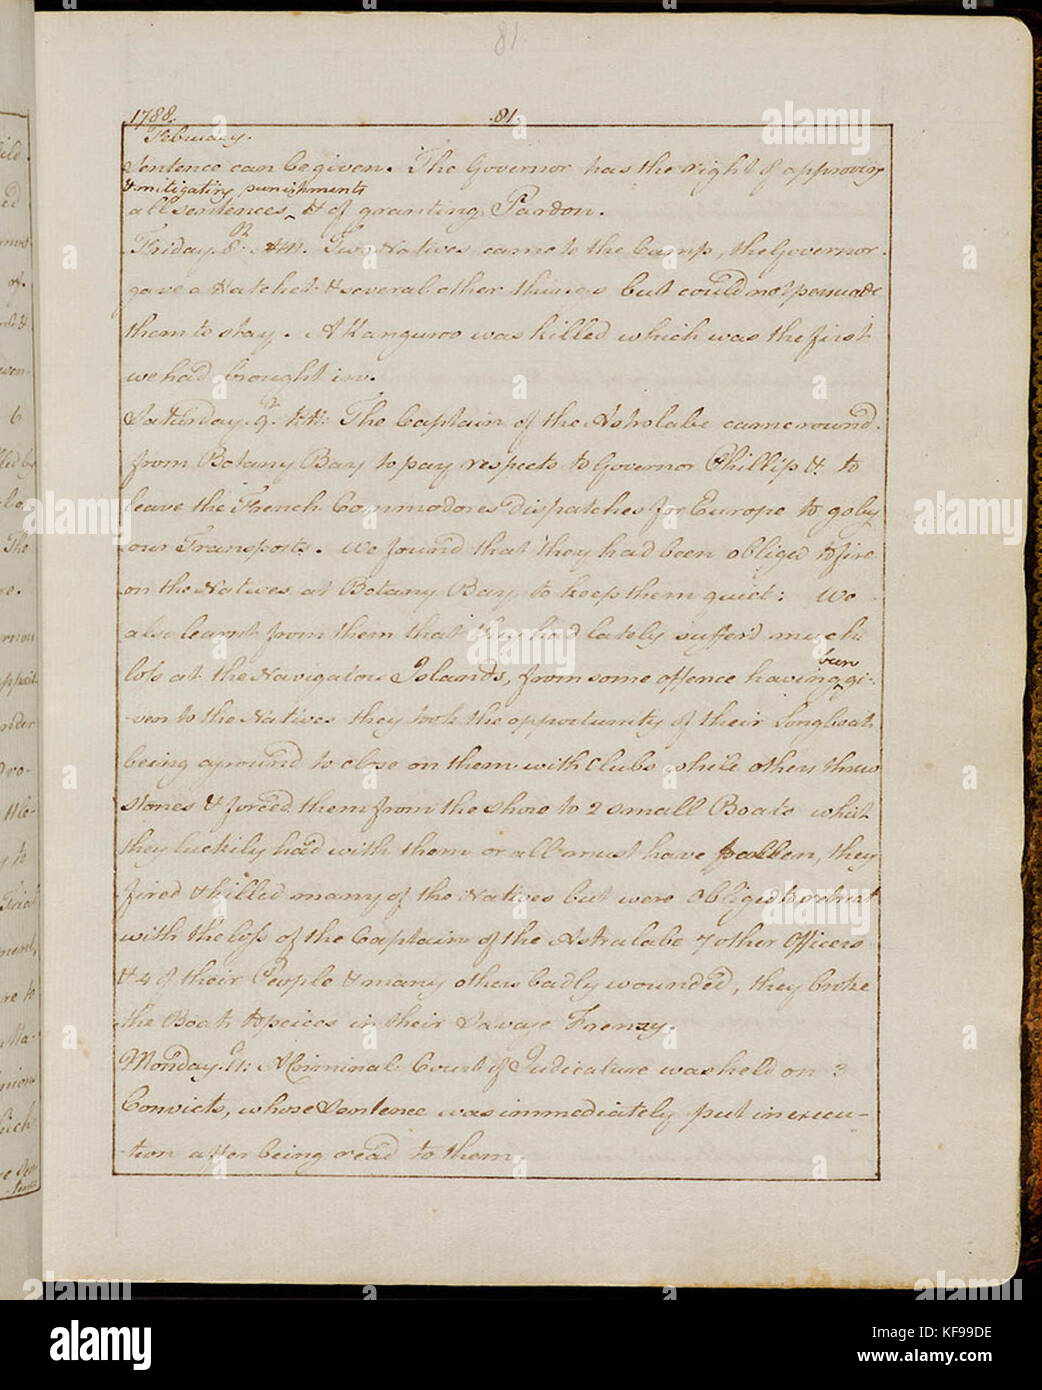 81
1788. .81.
February.
Sentence can be given. The Governor has the right of approving
& mitigating punishments
all sentences ^ & of granting Pardon.
Friday. 8: AM. Two Natives came to the Camp, the Governor
gave a Hatchet & several other things but could not persuade
them to stay. A Kanguroo was killed which was the first
we had brought in.
Saturday. 9. The Captain of the Astrolabe came round
from Botany Bay to pay respects to Governor Phillip & to
leave the French Commodores dispatches for Europe to go by
our Transports. We found that they had been obliged to fire
on the Natives at Botany Bay to keep them quiet: We
also learnt from them that they had lately suffer'd much
been
loss at the Navigators Islands, from some offence having ^ gi-
-ven to the Natives they took the opportunity of their Longboat
being aground to close on them with Clubs while others threw
stones & forced them from the shore to 2 small Boats which
they luckily had with them or all must have fallen, they
fired & killed many of the Natives but were obliged to retreat
with the loss of the Captain of the Astralabe 7 other Officers
& 4 of their People & many others badly wounded, they broke
the Boat to peices in their Savage Frenzy.
Monday. 11: A Criminal Court of Judicature was held on 3
Convicts, whose Sentence was immediately put in execu-
-tion after being read to them.
alamy
Image ID: KF99DE
www.alamy.com